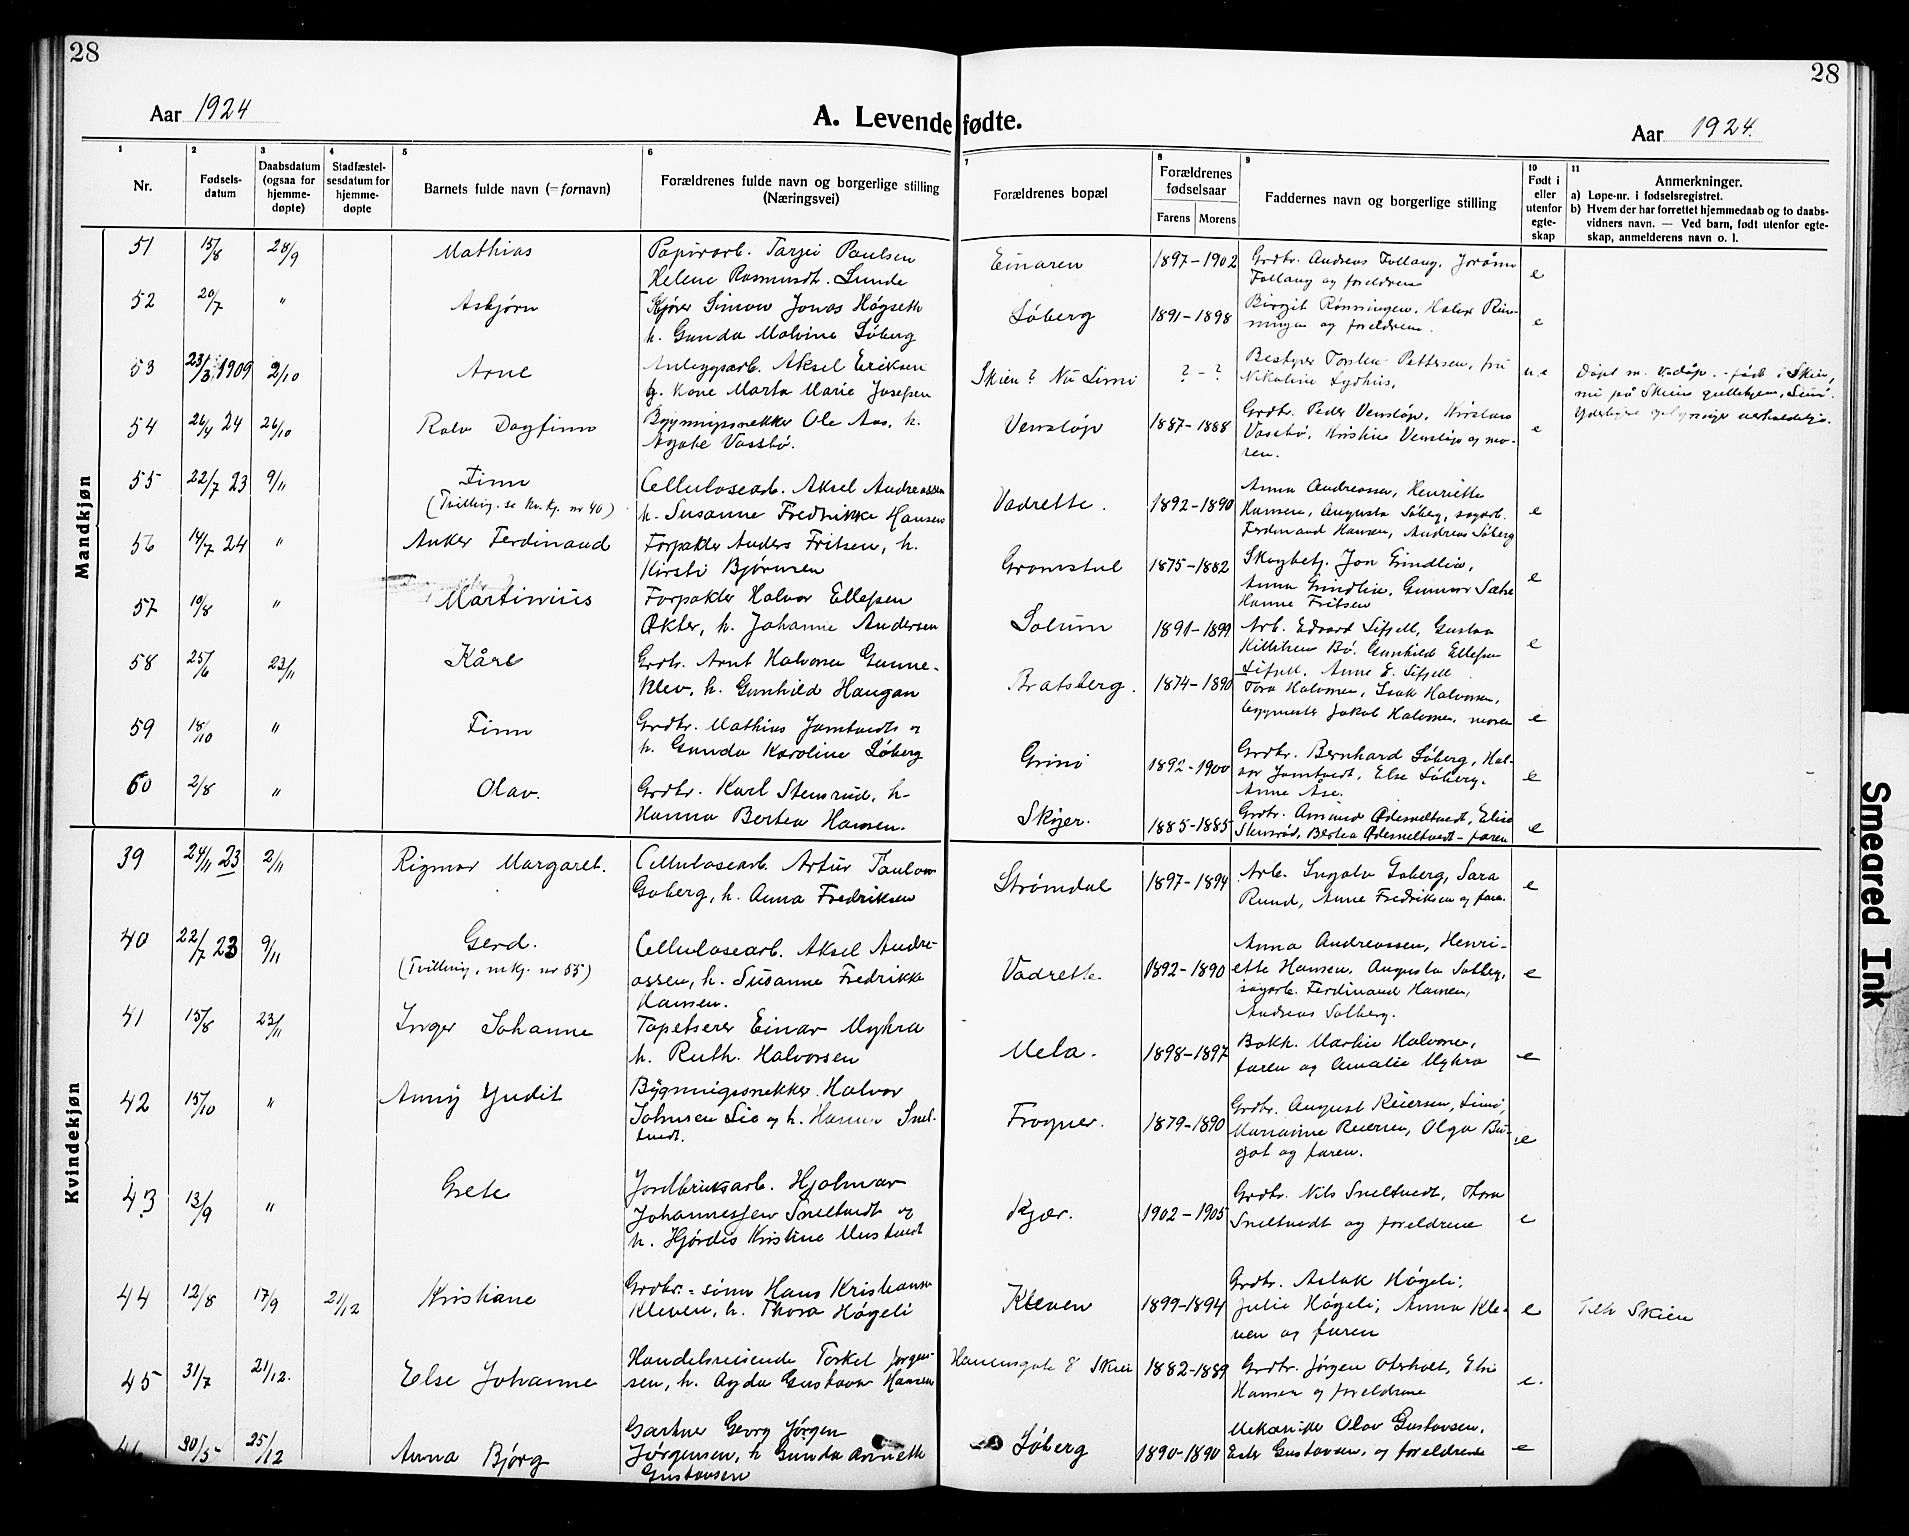 28
28
Aar 1924
A. Levendefødte.
Aar 1924.
1 Nr.
2 Fødsels-datum
3 Daabsdatum (ogsaa for hjemme-døpte)
4 Stadfæstel-sesdatum for hjemme-døpte
5 Barnets fulde navn (= fornavn)
6 Forældrenes fulde navn og borgerlige stilling (Næringsvei)
7 Forældrenes bopæl
8 Forældrenes fødselsaar
Farens Morens
9 Faddernes navn og borgerlige stilling
10 Født i eller utenfor egte-skap
11 Anmerkninger.
a) Løpe-nr. i fødselsregistret.
b) Hvem der har forrettet hjemmedaab og to daabs-
vidners navn. — Ved barn, født utenfor egte-
skap, anmelderens navn o. l.
Mandkjøn
51 15/8 28/9 Mathias Papirarb. Tarjei Paulsen
Helene Rasmusdt. Lunde
Einaren 1897-1902 Grdbr. Andreas
og foreldrene e
52 20/7 " Asbjørn Simon Jonas Høgseth
h. Gunda Malvine Søberg
Søberg 1891-1898 Birgit Rønningen. Halvor Røn-
ningen og foreldrene. e
53 23/3 1909 2/10 Arne Anleggsarb. Aksel Eriksen
g. kone Marta Marie Josefsen
Skien? Nu ? - ? Bestyrer Torsten Pettersen, fru
Nikoline u.e
født i Skien,
nu på Skiens
54 26/4 24 26/10 Rolv Dagfinn Bygningssnekker Ole Aas, h.
Agate Vassbø.
Venstøp 1887-1888 Grdbr. Peder Venstøp, Kirstine
Vassbø, Kristine Venstøp og mo-
ren. e
55 22/7 23 9/11 Finn
(Tvilling. se kv.kj. nr 40)
Cellulosearb. Aksel Andreassen
h. Susanne Fredrikke Hansen
Vadrette. 1892-1890 Anna Andreassen, Henriette
Hansen, Augusta Søberg, sagarb.
Ferdinand Hansen, Andreas Søberg e
56 14/7 24 " Anker Ferdinand Forpakter Anders Fritsen, h.
Kirsti Bjørnsen
Gromstul 1875-1882 Skogbetj. Jon Grindlia,
Anna Grindlia, Gunnar Sætre
Hanne Fritsen e
57 10/8 " Martinius Forpakter Halvor Ellefsen
Økter, h. Johanne Andersen
Solum 1891-1899 Arb. Edvard Lifjell, Gustav
Kittilsen Bø. Gunhild Ellefsen
Lifjell. Anne E. Lifjell e
58 25/6 23/11 Kåre Grdbr. Arnt Halvorsen Gunne-
klev, h. Gunhild Haugan
Bratsberg. 1874-1890 Tora Halvorsen, Isak Halvorsen,
byggmester Jakob Halvorsen, moren e
59 18/10 " Finn Grdbr. Mathias Jamtvedt og
h. Gunda Karoline Søberg
Grini 1892-1900 Grdbr. Bernhard Søberg, Hal-
vor Jamtvedt, Else Søberg.
Anne Åse. e
60 2/8 " Olav. Grdbr. Karl Stensrud, h.
Hanna Bertea Hansen.
Skyer. 1885-1885 Grdbr. Amund Ødesneltvedt, Elise
Stensrød, Bertea Ødesneltvedt - faren e
Kvindekjøn
39 24/11 23 2/11 Rigmor Margaret. Cellulosearb. Artur Paulsen
Goberg, h. Anna Fredriksen
Strømdal 1897-1894 Arb. Ingolv Goberg, Sara
Rund, Anne Fredriksen og faren. e
40 22/7 23 9/11 Gerd.
(Tvilling, m.kj. nr 55)
Cellulosearb. Aksel Andre-
assen, h. Susanne Fredrikke
Hansen.
Vadrette. 1892-1890 Anna Andreassen, Henri-
ette Hansen, Augusta Solberg,
sagarb. Ferdinand Hansen,
Andreas Solberg. e
41 15/8 23/11 Inger Johanne Tapetserer Einar Myhra
h. Ruth. Halvorsen
Mela. 1898-1897 Bokh. Martin Halvorsen,
faren og Amalie Myhra e
42 15/10 " Anny Judit Bygningssnekker Halvor
Johnsen Lie og h. Hanna Snel-
tvedt.
Frogner. 1879-1890 Grdbr. August Reiersen, Limi,
Marianne Reiersen, Olga Bu-
got og faren. e
43 13/9 " Grete Jordbruksarb. Hjalmar
Johannessen Sneltvedt og
h. Hjørdis Kristine Mustvedt
Kjær. 1902-1905 Grdbr. Nils Sneltvedt, Thora
Sneltvedt og foreldrene e
44 12/8 17/9 21/12 Kristiane Grdbr.-sønn Hans Kristiansen
Kleven, h. Thora Høgeli
Kleven 1899-1894 Grdbr. Aslak Høgeli;
Julie Høgeli; Anna Kle-
ven og faren e
Skien
45 31/7 21/12. Else Johanne Handelsreisende Torkel Jørgen-
sen, h. Agda Gustava Hansen
Hansensgate 8 Skien 1882-1889 Grdbr. Jørgen Oterholt, Elvi
Hansen og foreldrene e.
46 30/5 25/12 Anna Bjørg Gartner Georg Jørgen
Jørgensen, h Gunda Annette
Gustavsen
Søberg 1890-1890 Mekaniker Olav Gustavsen,
Ester Gustavsen, og foreldrene e
Smeared Ink